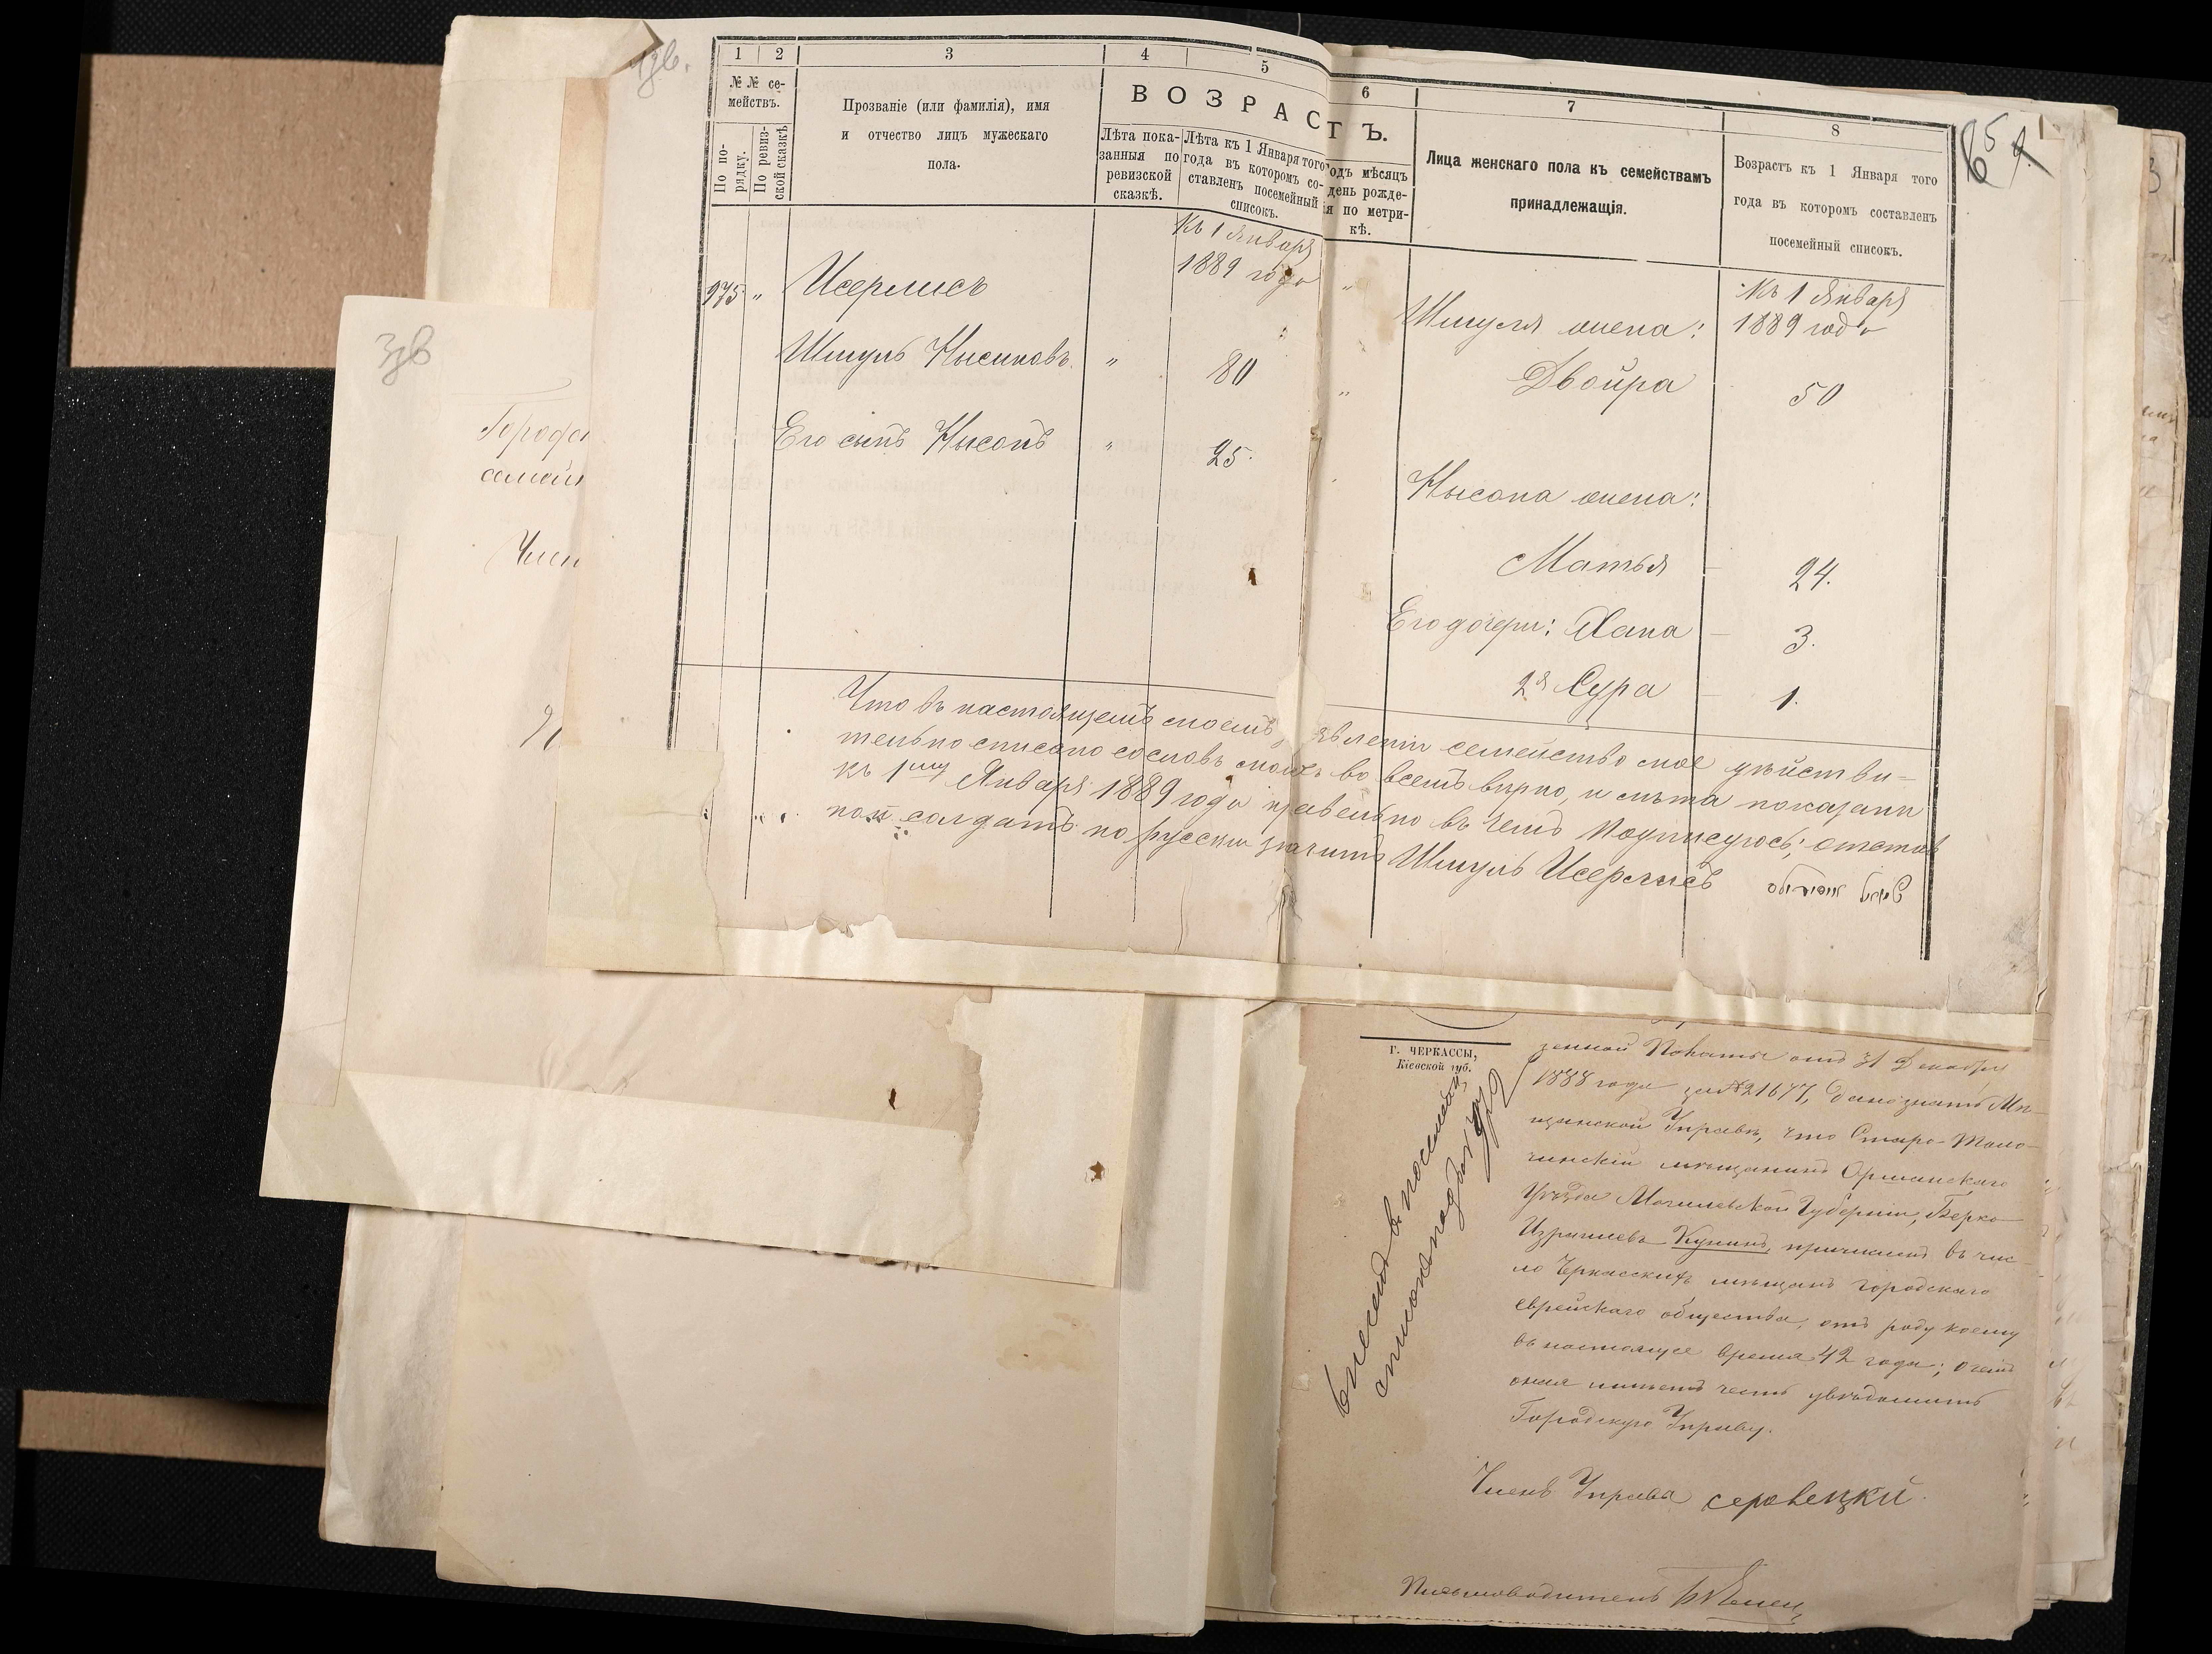 1 2 3 4 5 6 7 8
№ № се-
мействъ.
По по-
рядку.
По ревиз-
ской сказкѣ
Прозваніе (или фамилія), имя
и отчество лицъ мужескаго
пола.
ВОЗРАСТЪ.
Лѣта пока-
занныя по
ревизской
сказкѣ.
Лѣта къ 1 Января того
года въ которомъ со-
ставленъ посемейный
списокъ.
одъ мѣсяцъ
день рожде-
ія по метри-
кѣ.
Лица женскаго пола къ семействамъ
принадлежащія.
Возрастъ къ 1 Января того
года въ которомъ составленъ
посемейный списокъ.
Къ 1 Января
1889 года
Къ 1 Января
1889 года
975 " Исерлисъ
Шмуля жена:
Шмуль Нысиновъ " 80
Двойра 50
Его сынъ Нысонъ " 25.
Нысона жена:
Матья 24.
Его дочери: Хана 3.
2я Сура 1.
Что въ настоящемъ моемъ явленіи семейство мое дѣйстви-
тельно списано со словъ моихъ во всемъ вѣрно, и лѣта показани
къ 1му Января 1889 года правельно въ чемъ Подписуюсь; отстав
ной солдатъ по русски значитъ Шмуль Исерлисъ
Городс
семейн
Член
Г. ЧЕРКАССЫ,
Кіевской губ.
зенной Полаты отъ 31 Декабря
1888 года за №21677, даетъ знать Мѣ-
щанской Управѣ, что Старо-Толо-
чинскій мѣщанинъ Оршанскаго
Уѣзда Могилевской Губерніи, Берко
Израилевъ Кунинъ, причисленъ въ чис-
ло Черкасскихъ мѣщанъ городскаго
еврейскаго общества, отъ роду коему
въ настоящее время 42 года; о чемъ
оная имѣетъ честь увѣдомить
Городскую Управу.
Членъ Управы
Письмоводитель
внесенъ в посемейн
списокъ подъ № 972